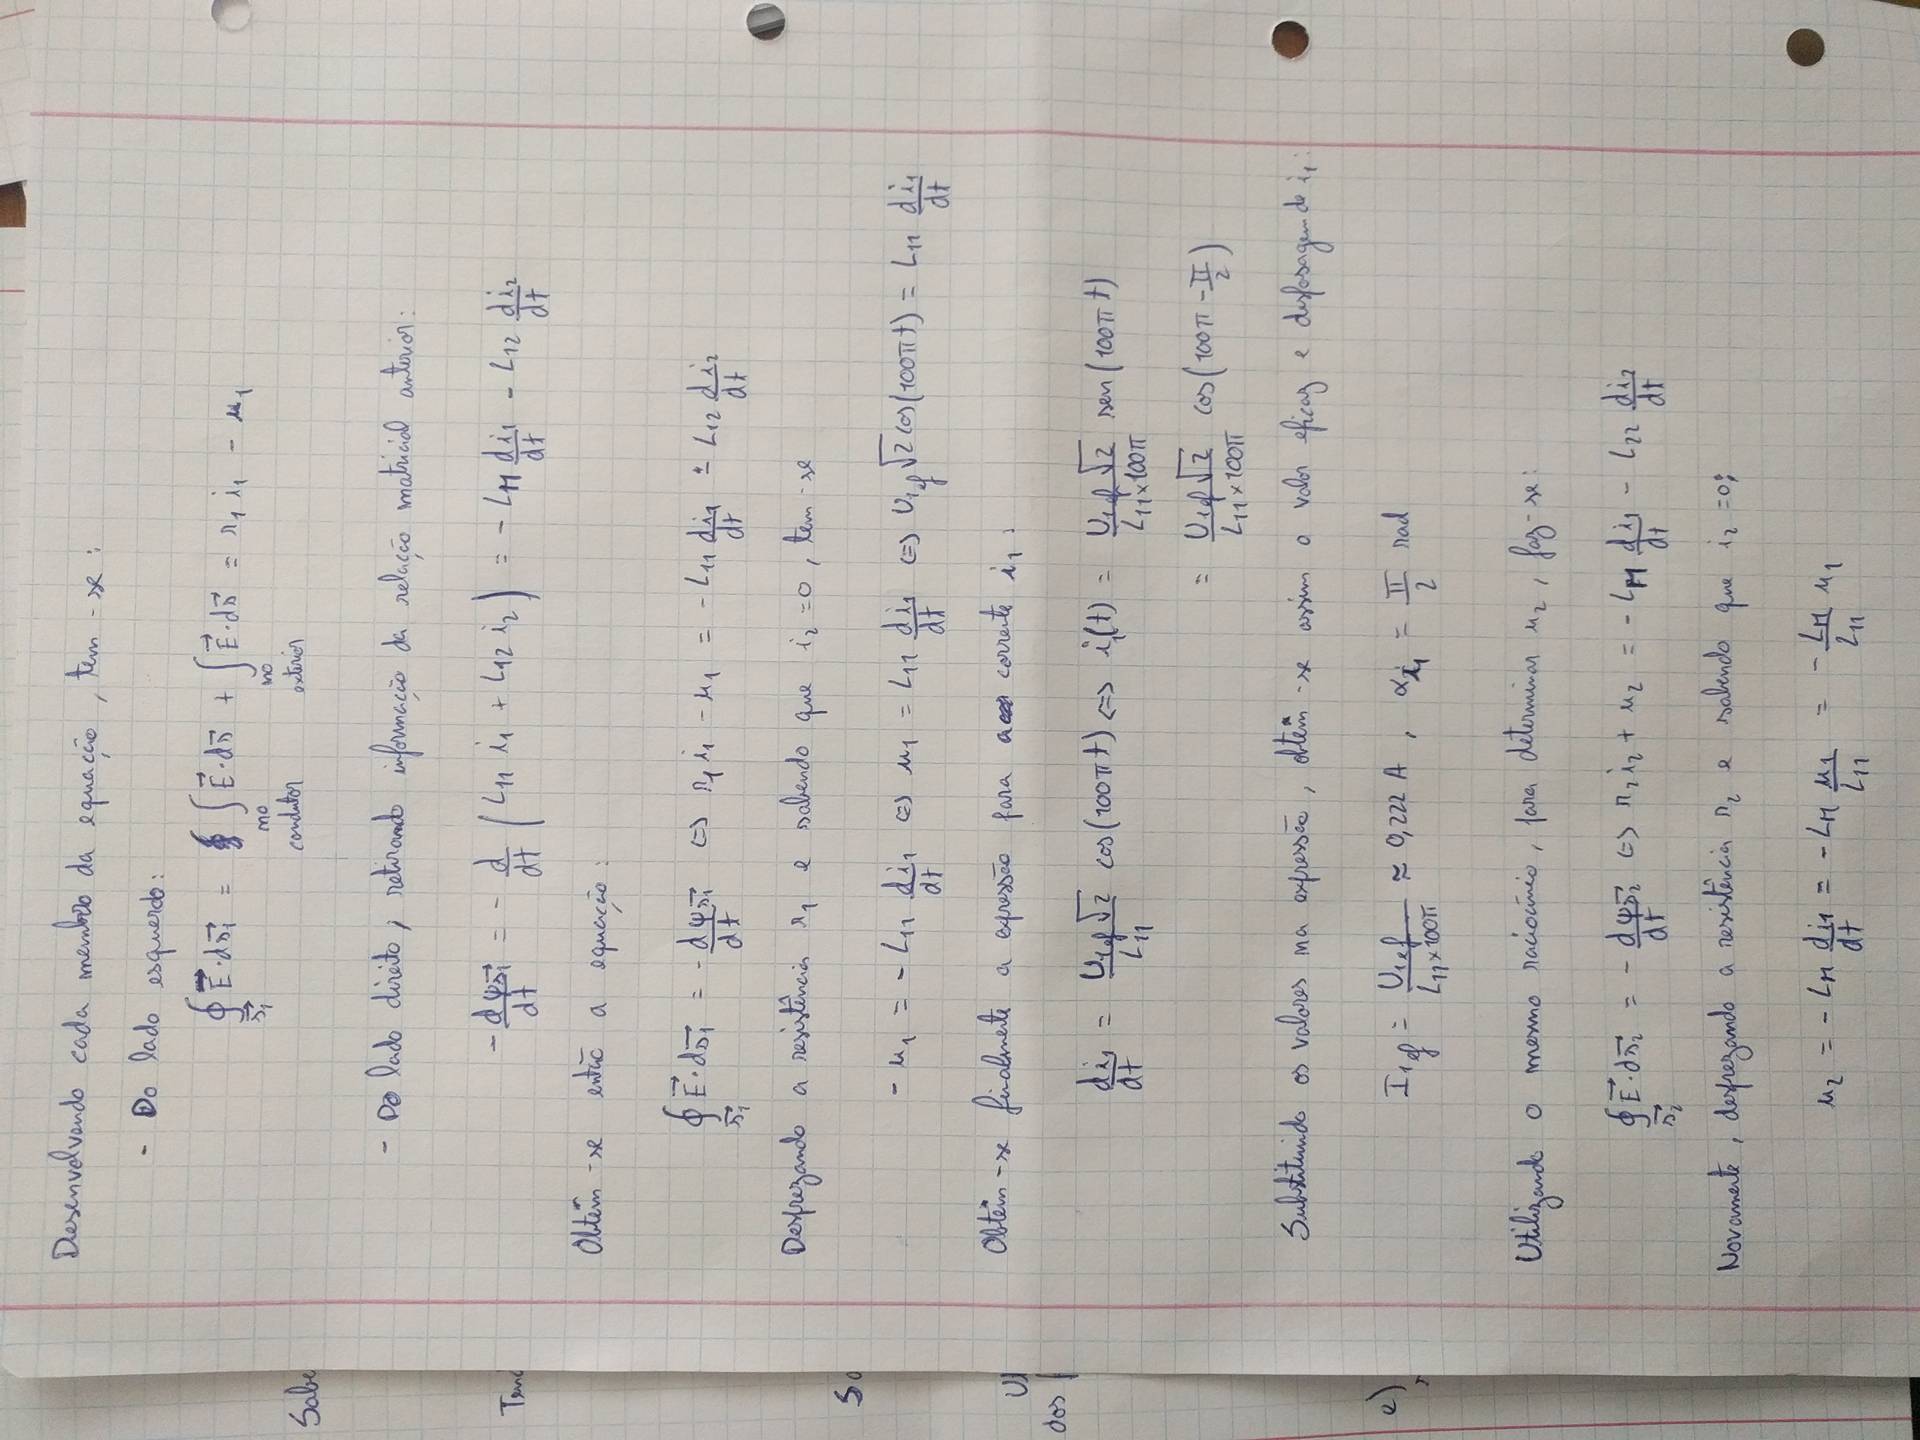 Desenvolvendo cada membro da equação, tem-se:
- Do lado esquerdo:
∮_s⃗₁ E⃗·ds⃗₁ = ∫_no condutor E⃗·ds⃗ + ∫_no exterior E⃗·ds⃗ = r₁ i₁ - u₁
- Do lado direito, retirando informação da relação matricial anterior:
- dψs⃗₁/dt = - d/dt (L₁₁ i₁ + L₁₂ i₂) = - L₁₁ di₁/dt - L₁₂ di₂/dt
Obtém-se então a equação:
∮_s⃗₁ E⃗·ds⃗₁ = - dψs⃗₁/dt <=> r₁ i₁ - u₁ = - L₁₁ di₁/dt ± L₁₂ di₂/dt
Desprezando a resistência r₁ e sabendo que i₂=0, tem-se
- u₁ = - L₁₁ di₁/dt <=> u₁ = L₁₁ di₁/dt <=> U₁ef √2 cos(100π t) = L₁₁ di₁/dt
Obtém-se finalmente a expressão para a corrente i₁:
di₁/dt = U₁ef √2/L₁₁ cos(100π t) <=> i₁(t) = U₁ef √2/L₁₁×100π sen(100π t)
= U₁ef √2/L₁₁×100π cos(100π - π/2)
Substituindo os valores na expressão, obtém-se assim o valor eficaz e desfasagem de i₁:
I₁ef = U₁ef/L₁₁×100π ≈ 0,222 A , αi₁ = π/2 rad
Utilizando o mesmo raciocínio, para determinar u₂, faz-se:
∮_s⃗₂ E⃗·ds⃗₂ = - dψs⃗₂/dt <=> r₂ i₂ + u₂ = - L_M di₁/dt - L₂₂ di₂/dt
Novamente, desprezando a resistência r₂ e sabendo que i₂=0;
u₂ = - L_M di₁/dt = - L_M u₁/L₁₁ = - L_M/L₁₁ u₁
Sabe
dos
e)